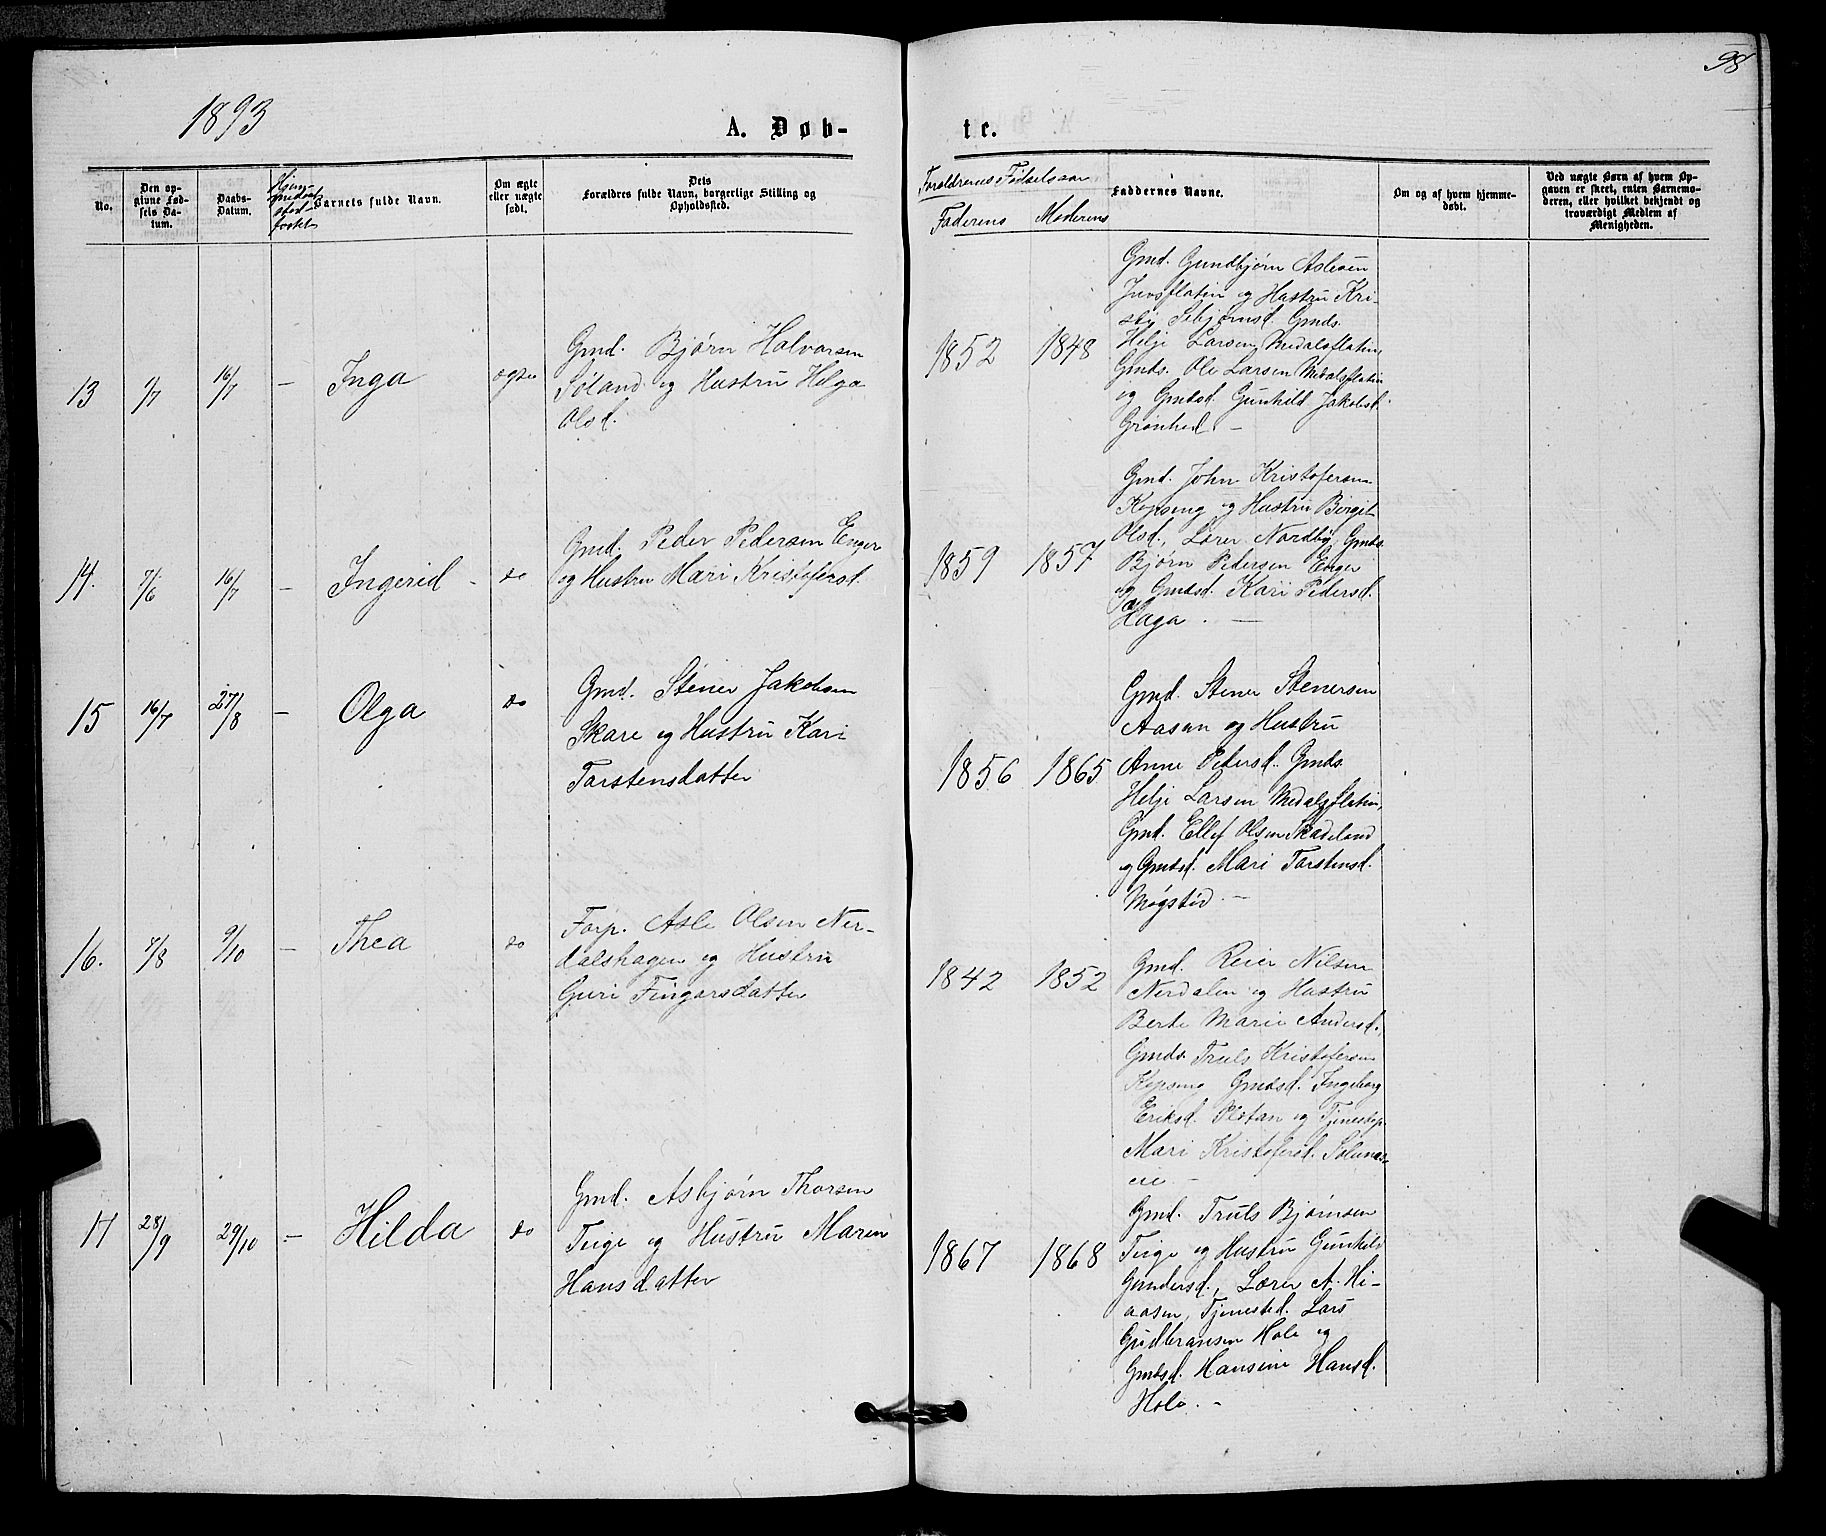 98
1893
A. Døb-
te.
No.
Den op-
givne Fød-
sels Da-
tum.
Daabs-
Datum.
Barnets fulde Navn.
Om ægte
eller uægte
født.
Dets
Forældres fulde Navn, borgerlige Stilling og
Opholdssted.
Forældrenes Fødselsaar
Faderens Moderens
Faddernes Navne.
Om og af hvem hjemme-
døbt.
Ved uægte Børn af hvem Op-
gaven er skeet, enten Barnemo-
deren, eller hvilket bekjendt og
troværdigt Medlem af
Menigheden.
13 1/7 16/7 – Inga ægte
Gmd. Bjørn Halvorsen
Søland og Hustru Helga
Olsd.
1852 1848
Gmd. Gundbjørn Aslesen
Juvsflatin og Hustru Kri-
Gmds.
Helje Larsen Medalsflatin,
Gmds. Ole Larsen Medalsflatin
og Gmdsd. Gunhild Jakobsd.
Grønhed. –
14. 7/6 16/7 – Ingerid – do
Gmd. Peder Pedersen Enger
og Hustru Mari Kristofersd.
1859 1857
Gmd. John Kristofersen
Kopseng og Hustru Birgit
Olsd., Lærer Nordby, Gmds.
Bjørn Pedersen Enger
og Gmdsd. Kari Pedersd.
Haga. –
15 16/7 27/8 – Olga do
Gmd. Stener Jakobsen
Skare og Hustru Kari
Torstensdatter
1856 1865
Gmd. Stener Stenersen
Aasan og Hustru
Anne Pedersd. Gmds.
Helje Larsen Medalsflatin,
Gmd. Ellef Olsen Skadeland
og Gmdsd. Mari Torstensd.
Møgstød. –
16. 7/8 9/10 – Thea do
Forp. Asle Olsen Ner-
dalshagen og Hustru
Guri Fingarsdatter
1842 1852
Gmd. Reier Nilsen
Nerdalen og Hustru
Berte Marie Andersd.
Gmds. Truls Kristofersen
Kopseng Gmdsd. Ingeborg
Eriksd. Olstan og Tjenestep.
Mari Kristofersd.
eie –
17 28/9 29/10 – Hilda do
Gmd. Asbjørn Thorsen
Teige og Hustru Maren
Hansdatter
1867 1868
Gmd. Truls Bjørnsen
Teige og Hustru Gunhild
Gundersd., Lærer A. Hi-
aasen, Tjenested. Lars
Gudbransen Hole og
Gmdsd. Hansine Hansd.
Hole. –